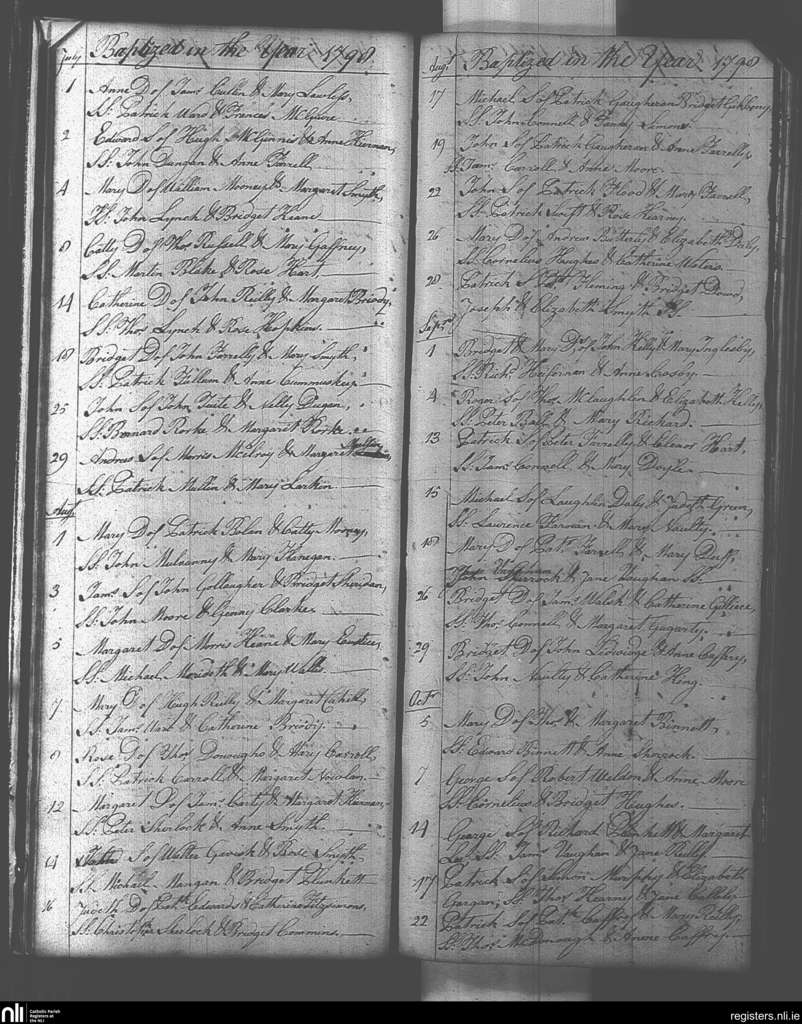 July Baptized in the Year 1798
1 Anne D of Jams Cullen & Mary Lawless,
Ss. Patrick Ward & Frances McGuire
2 Edward S of Hugh McGinnis & Anne Heernan,
Ss. John Dungan & Anne Farrell
4 Mary D of William Mooney & Margaret Smyth,
Ss. John Lynch & Bridget Keane
8 Catty D of Thos Russell & Mary Gaffney,
Ss. Martin Blake & Rose Hart.
14 Catherine D of John Reilly & Margaret Briody,
Ss. Thos Lynch & Rose Hopkins.
Bridget D of John Farrelly & Mary Smyth,
Ss. Patrick & Anne
25 John S of John Tuite & Nelly Dugan,
Ss. Bernard Rorke & Margaret Rorke.
29 Andrew S of Morris McElroy & Margaret Mullin
Ss. Patrick Mullin & Mary Larkin
Aug.
1 Mary D of Patrick Nolan & Catty Mooney,
Ss. John Mulvanny & Mary Flanegan.
3 Jams S of John Gollaugher & Bridget Sheridan,
Ss. John Moore & Genny Clarke.
5 Margaret D of Morris Keane & Mary Eustice,
Ss. Michael & Mary Walls.
7 Mary D of Hugh Reilly & Margaret Cahill,
Ss. Jams Ward & Catherine Briody.
8 Rose D of Thos Donougho & Mary Carroll,
Ss. Patrick Carroll & Margaret
12 Margaret D of Jams Carty & Margaret Heernan,
Ss. Peter Sherlock & Anne Smyth.
14 S of Walter & Rose Smyth
Ss. Michael Mangan & Bridget Plunkett
16 Judeth D of Patk Edwards & Catherine Fitzsimons,
Ss. Christopher Sherlock & Bridget Commins.
Augt Baptized in the Year 1798
17 Michael S of Patrick Gaugheran & Bridget
Ss. John Connell & Fanny Simons
19 John S of Patrick Gaugheran & Anne Farrelly,
Ss. Jams Carroll & Anne Moore.
22 John S of Patrick Hood & Mary Farrell,
Ss. Patrick Swift & Rose Kearney.
26 Mary D of Andrew & Elizabeth Daly,
Ss. Cornelius Hughes & Catherine Waters.
28 Patrick S Patk Fleming & Bridget Dowd,
Joseph & Elizabeth Smyth Ss
Sepr
1 Bridget & Mary Ds of John Kelly & Mary Inglesby,
Ss. Richd & Anne Crosby.
4 Roger S of Thos McLaughlin & Elizabeth Kelly,
Ss. Peter & Mary Richard.
13 Patrick S of Peter Farrelly & Elenor Hart,
Ss. Jams Connell & Mary
15 Michael S of Laughlin Daly & Judeth Green,
Ss. Lawrence & Mary Naulty.
Mary D of Patk Farrell & Mary Duff,
John & Jane Vaughan Ss.
26 Bridget D of Jams Walsh & Catherine
Ss. Thos Connell & Margaret Gogarty.
29 Bridget D of John Ledwidge & Anne Caffrey,
Ss. John Naulty & Catherine
Octr
5 Mary D of Thos & Margaret Binnett,
Ss. Edward Binnett & Anne
7 George S of Robert Weldon & Anne Moore
Ss. Cornelius & Bridget Hughes.
14 George S of Richard Plunkett & Margaret
Ss. Jams Vaughan & Jane Reilly
17 Patrick S of Simon & Elizabeth
Gargan, Ss. Thos Kearney & Jane
22 Patrick S of Patk Caffrey & Mary Reilly,
Ss. Thos McDonough & Anne Caffrey.
nli
Catholic Parish
Registers at
the NLI
registers.nli.ie